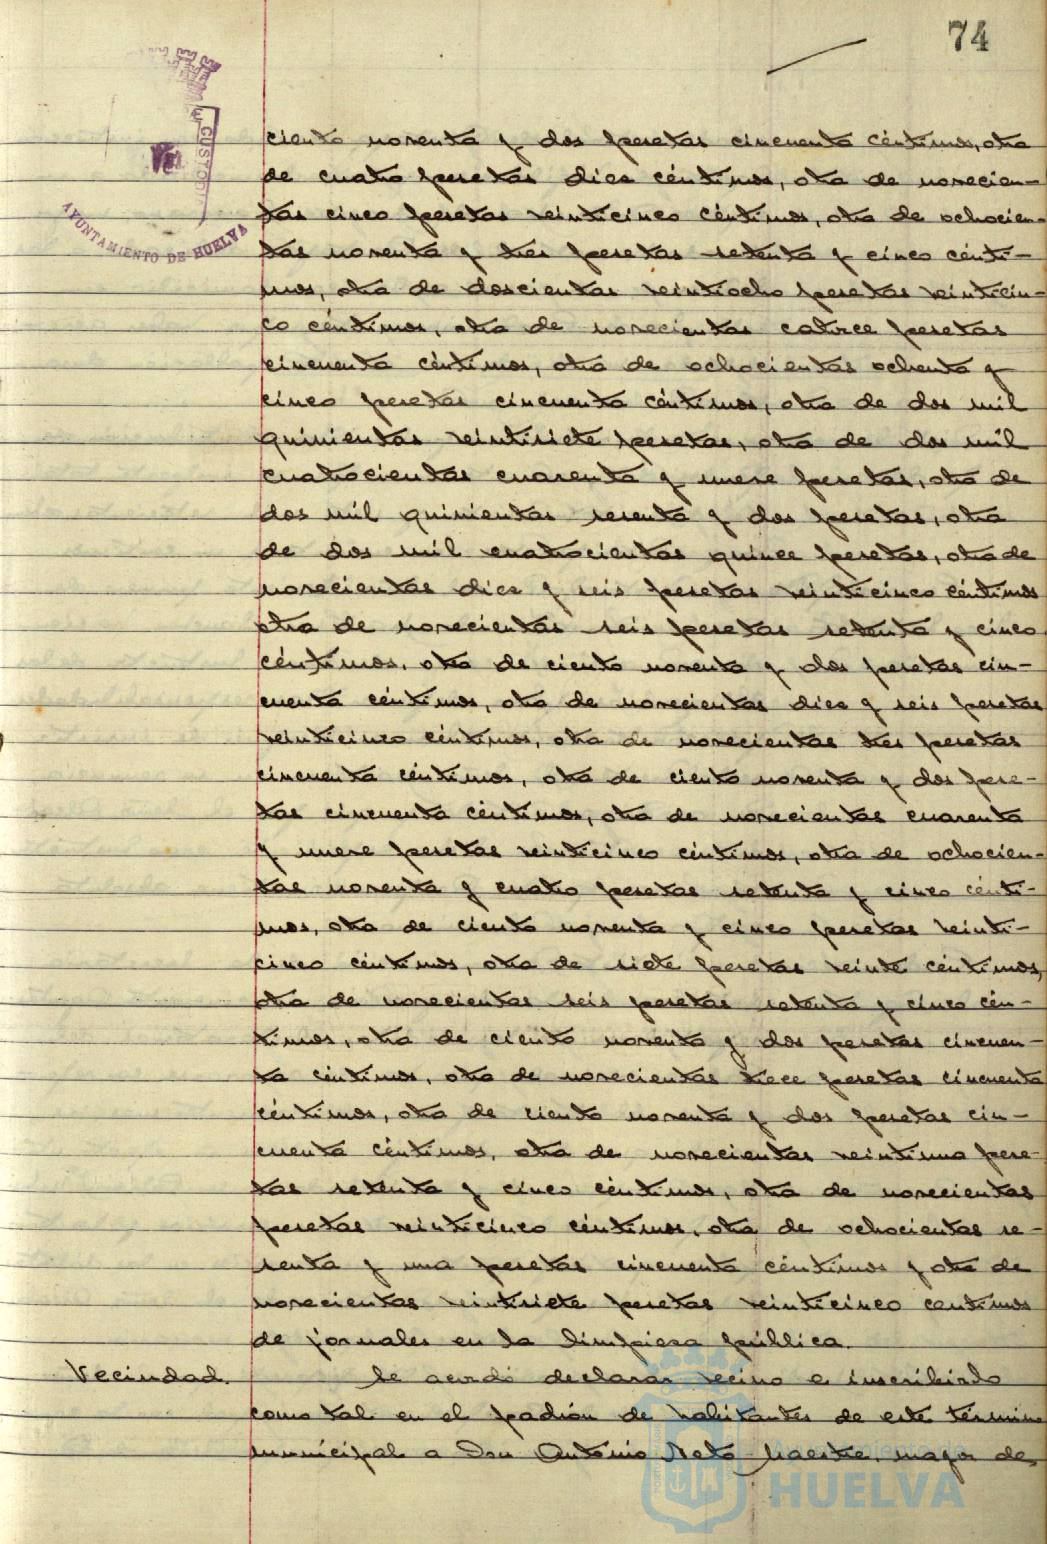 74
CUSTODI
AYUNTAMIENTO DE HUELVA
ciento noventa y dos pesetas cincuenta céntimos, otra
de cuatro pesetas diez céntimos, otra de novecien-
tas cinco pesetas veinticinco céntimos, otra de ochocien-
tas noventa y tres pesetas setenta y cinco cénti-
mos, otra de doscientas veintiocho pesetas veinticin-
co céntimos, otra de novecientas catorce pesetas
cincuenta céntimos, otra de ochocientas ochenta y
cinco pesetas cincuenta céntimos, otra de dos mil
quinientas veintisiete pesetas, otra de dos mil
cuatrocientas cuarenta y nueve pesetas, otra de
dos mil quinientas sesenta y dos pesetas, otra
de dos mil cuatrocientas quince pesetas, otra de
novecientas diez y seis pesetas veinticinco céntimos
otra de novecientas seis pesetas setenta y cinco
céntimos, otra de ciento noventa y dos pesetas cin-
cuenta céntimos, otra de novecientas diez y seis pesetas
veinticinco céntimos, otra de novecientas tres pesetas
cincuenta céntimos, otra de ciento noventa y dos pese-
tas cincuenta céntimos, otra de novecientas cuarenta
y nueve pesetas veinticinco céntimos, otra de ochocien-
tas noventa y cuatro pesetas setenta y cinco cénti-
mos, otra de ciento noventa y cinco pesetas veinti-
cinco céntimos, otra de siete pesetas veinte céntimos,
otra de novecientas seis pesetas setenta y cinco cén-
timos, otra de ciento noventa y dos pesetas cincuen-
ta céntimos, otra de novecientas trece pesetas cincuenta
céntimos, otra de ciento noventa y dos pesetas cin-
cuenta céntimos, otra de novecientas veintiuna pese-
tas setenta y cinco céntimos, otra de novecientas
pesetas veinticinco céntimos, otra de ochocientas se-
senta y una pesetas cincuenta céntimos y otra de
novecientas veintisiete pesetas veinticinco centimos
de jornales en la limpieza pública.
Vecindad. Se acordó declarar vecino e inscribirlo
como tal en el padrón de habitantes de este término
municipal a Don Antonio Neto Maestre, mayor de
Ayuntamiento de
HUELVA